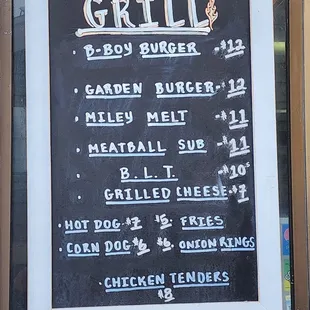 GRILL
· B-BOY BURGER -$12
· GARDEN BURGER -$12
· MILEY MELT -$11
· MEATBALL SUB -$11
· B.L.T. -$10
· GRILLED CHEESE -$7
· HOT DOG -$7 $5- FRIES
· CORN DOG $6 $6- ONION RINGS
· CHICKEN TENDERS
$8